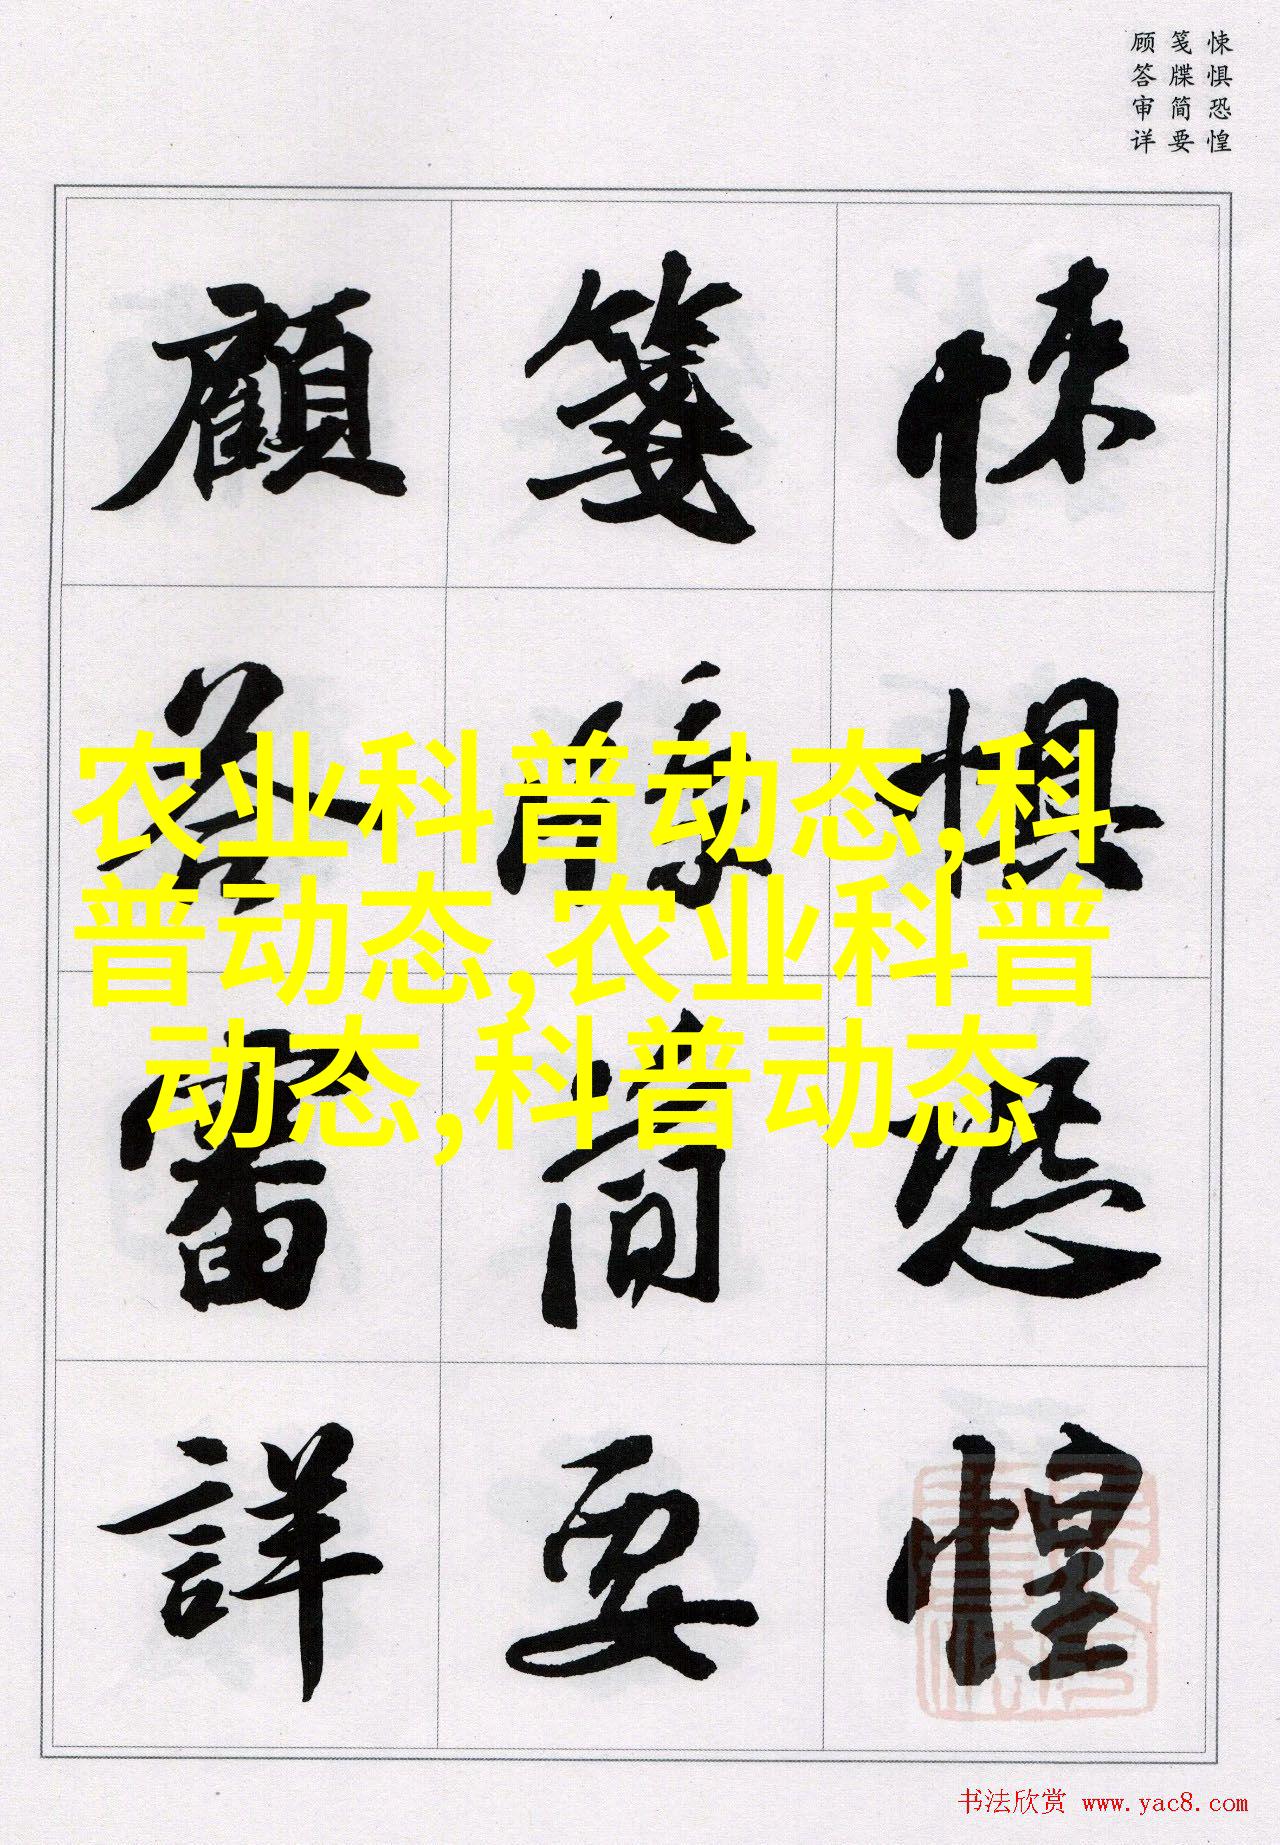 悚惧恐惶
笺牒简要
顾答审详
悚懼恐惶
箋牒簡要
顧答審詳
农业科普动态,科
普动态,农业科普
动态,科普动态
书法欣赏 www.yac8.com